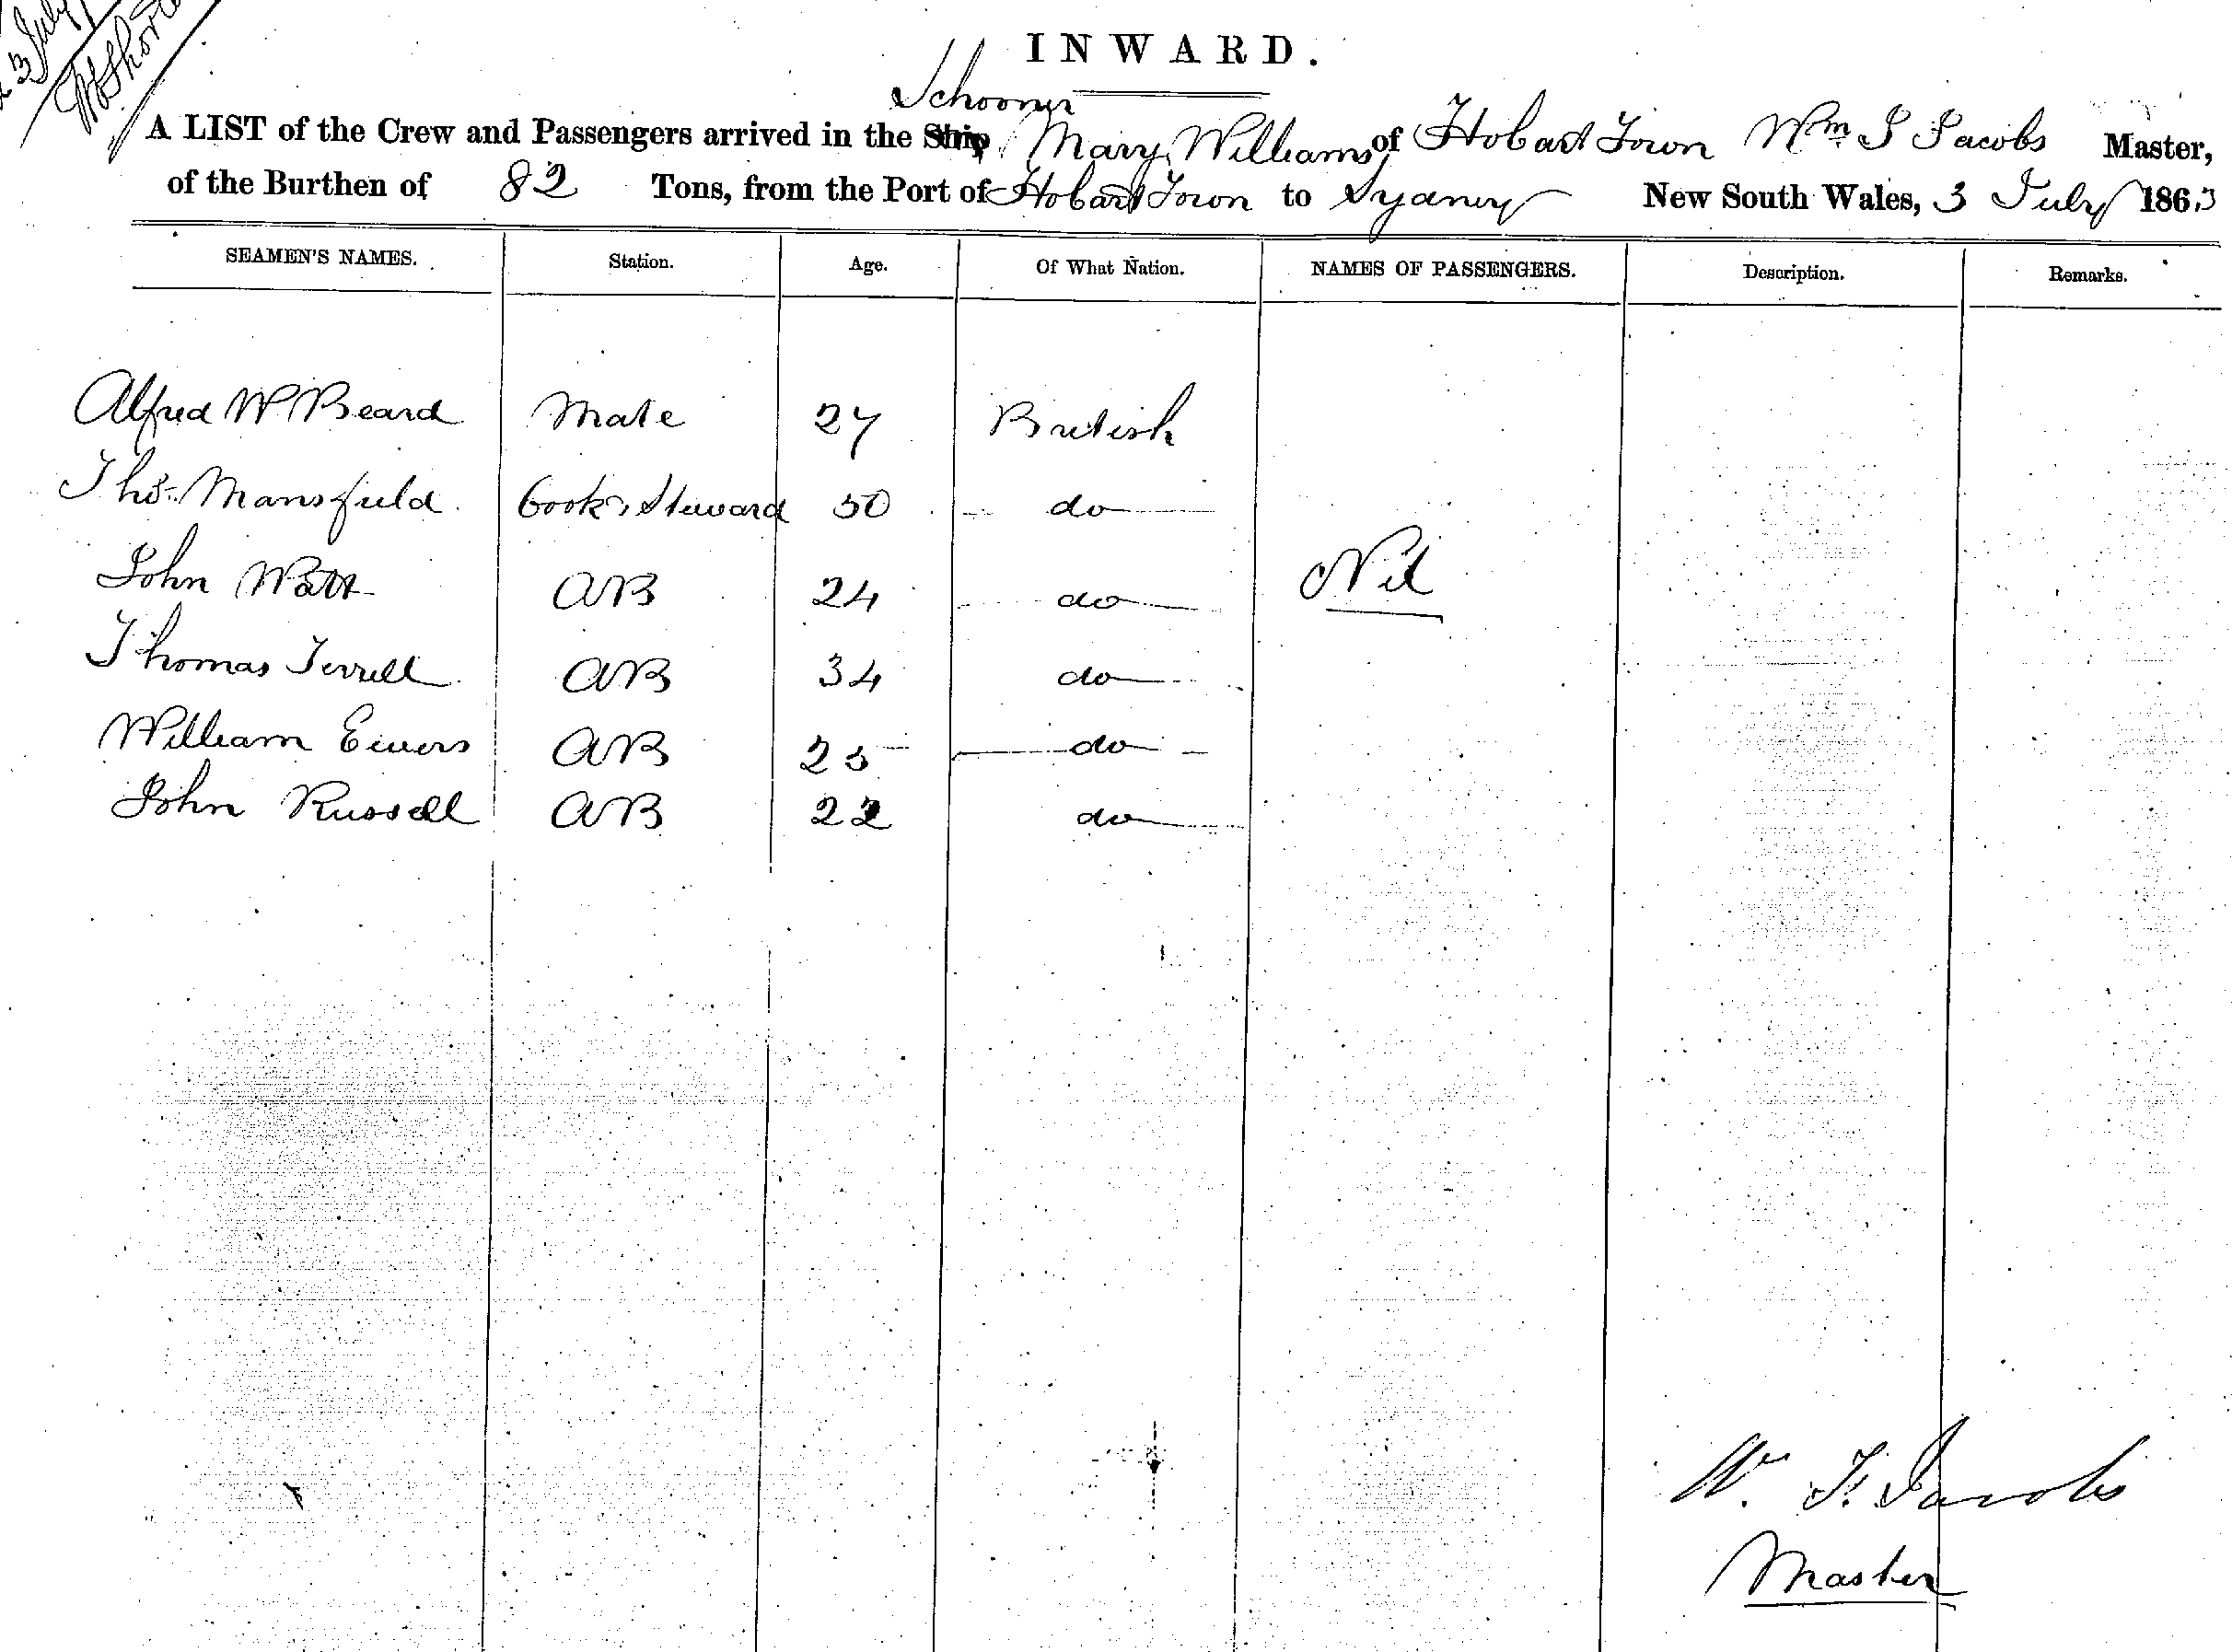 3 July
INWARD.
Schooner
A LIST of the Crew and Passengers arrived in the Ship Mary Williams, of Hobart Town Wm S Jacobs Master,
of the Burthen of 82 Tons, from the Port of Hobart Town to Sydney New South Wales, 3 July 1863
SEAMEN'S NAMES. Station. Age. Of What Nation. NAMES OF PASSENGERS. Description. Remarks.
Alfred W Beard Mate 27 British
Thos. Mansfield Cook & Steward 50 do
John Watt AB 24 do Nil
Thomas Terrell AB 34 do
William Ewers AB 25 do
John Russell AB 22 do
Wm. S. Jacobs
Master